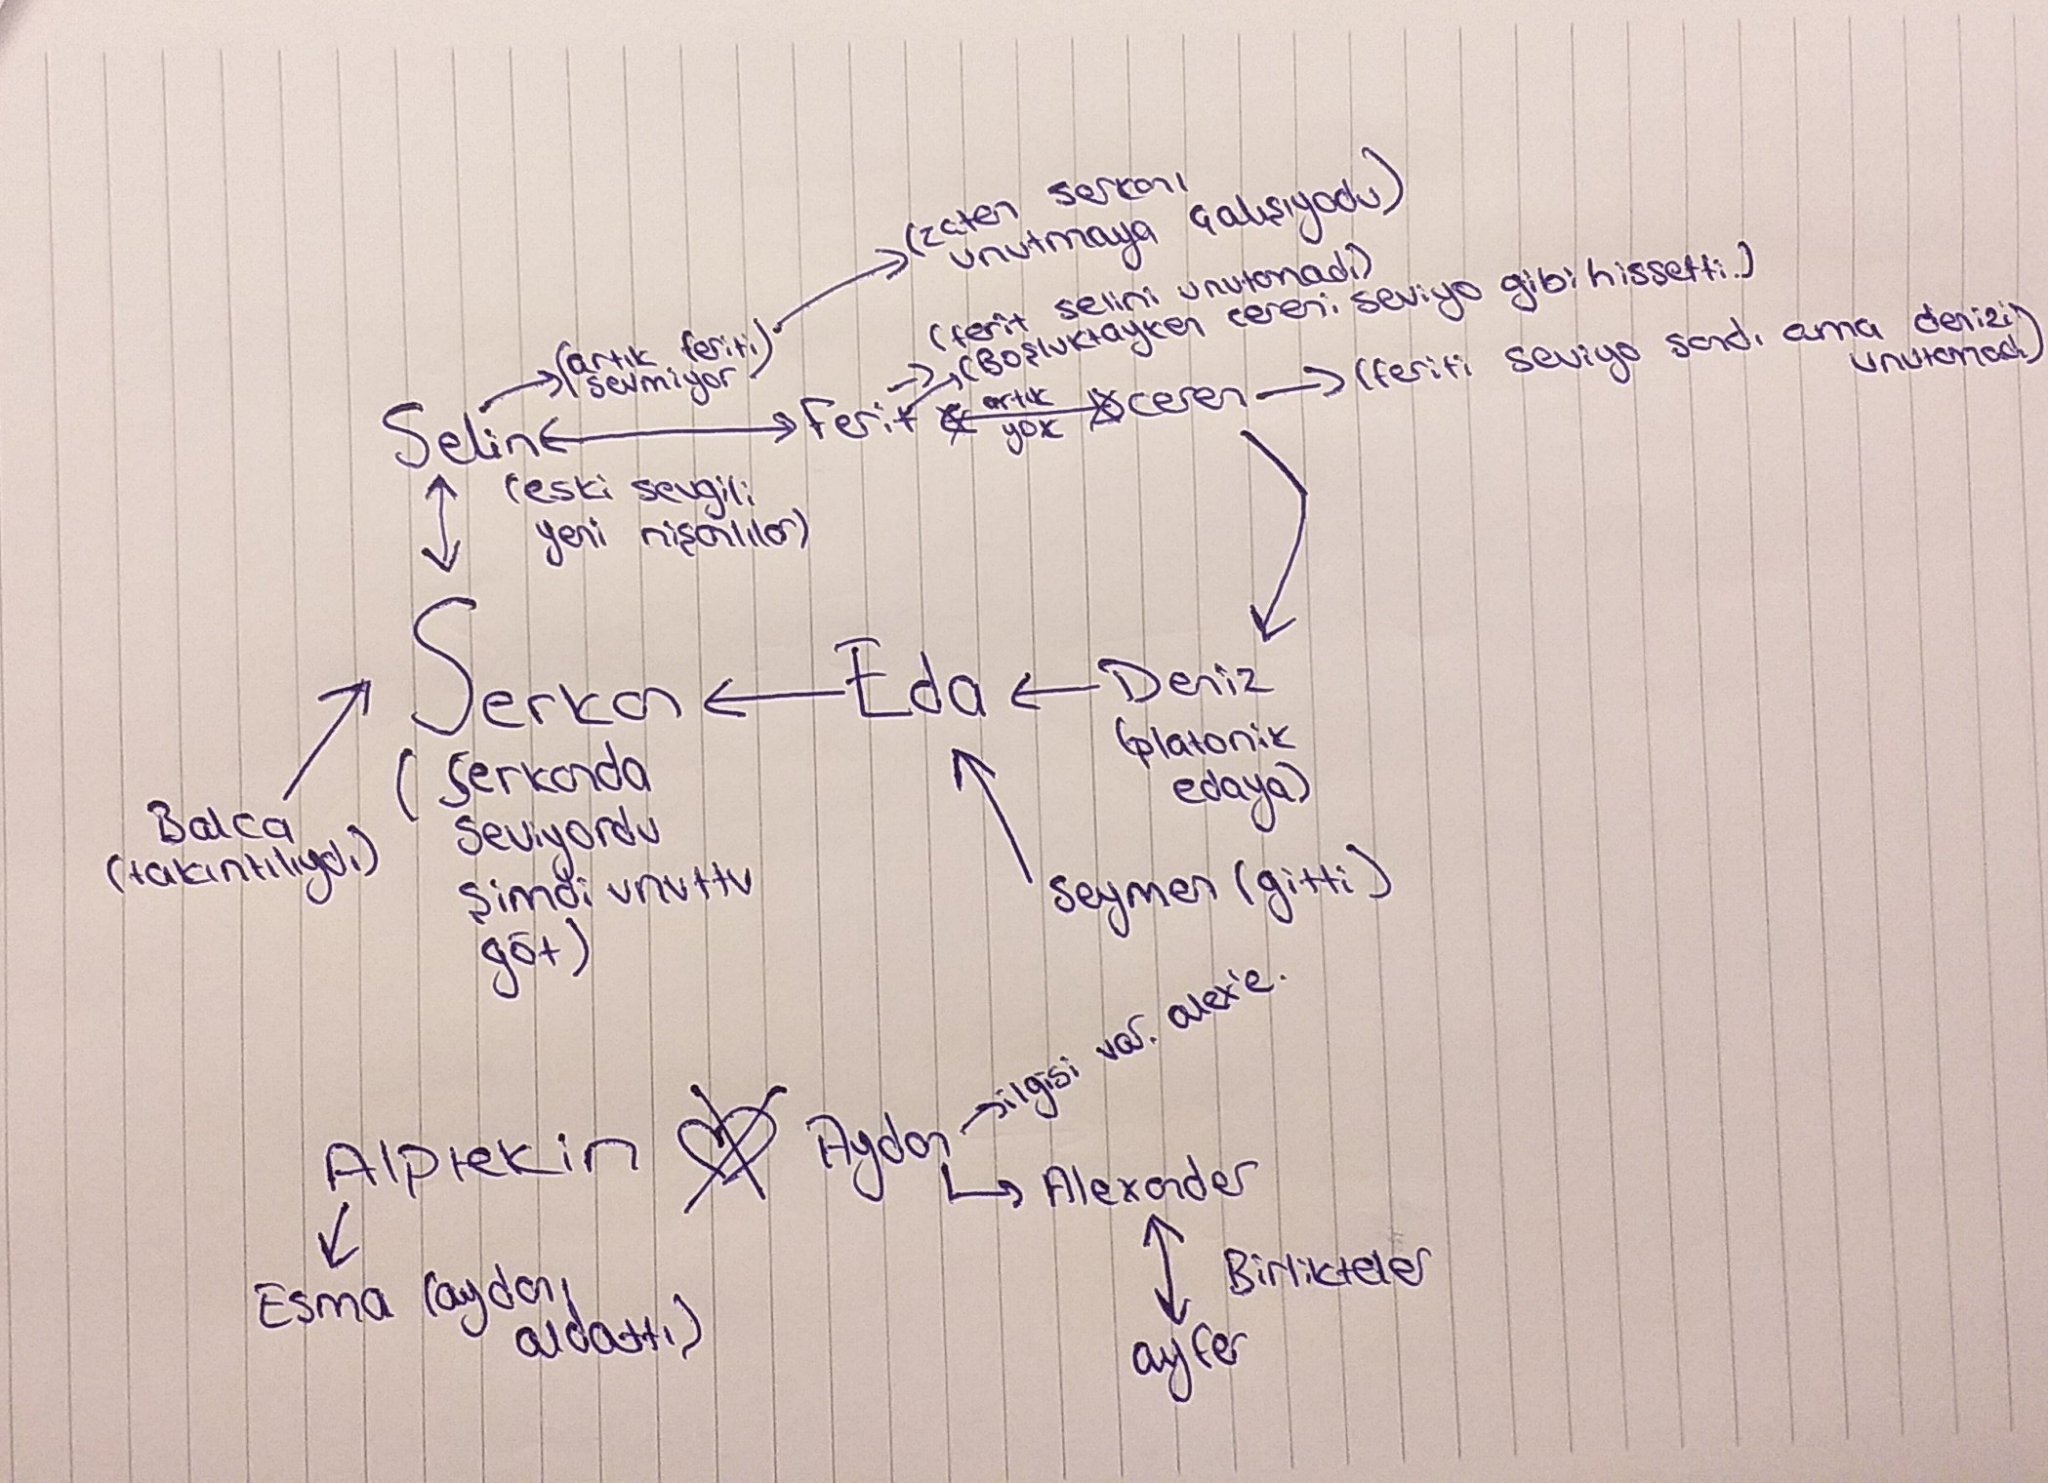 (zaten serkanı
unutmaya çalışıyodu)
(artık feriti)
sevmiyor
(ferit selini unutamadı)
(Boşluktayken cereni seviyo gibi hissetti.)
Selin
Ferit
artık
yok
ceren
(feriti seviyo sandı ama denizi
unutamadı)
(eski sevgili
yeni nişanlılar)
Serkan
Eda
Deniz
(platonik
edaya)
(Serkanda
seviyordu
şimdi unuttu
göt)
Balca
(takıntılıydı)
seymen (gitti)
Alptekin
Aydan
ilgisi var. alex'e.
Alexander
Esma (aydanı
aldattı)
Birlikteler
ayfer